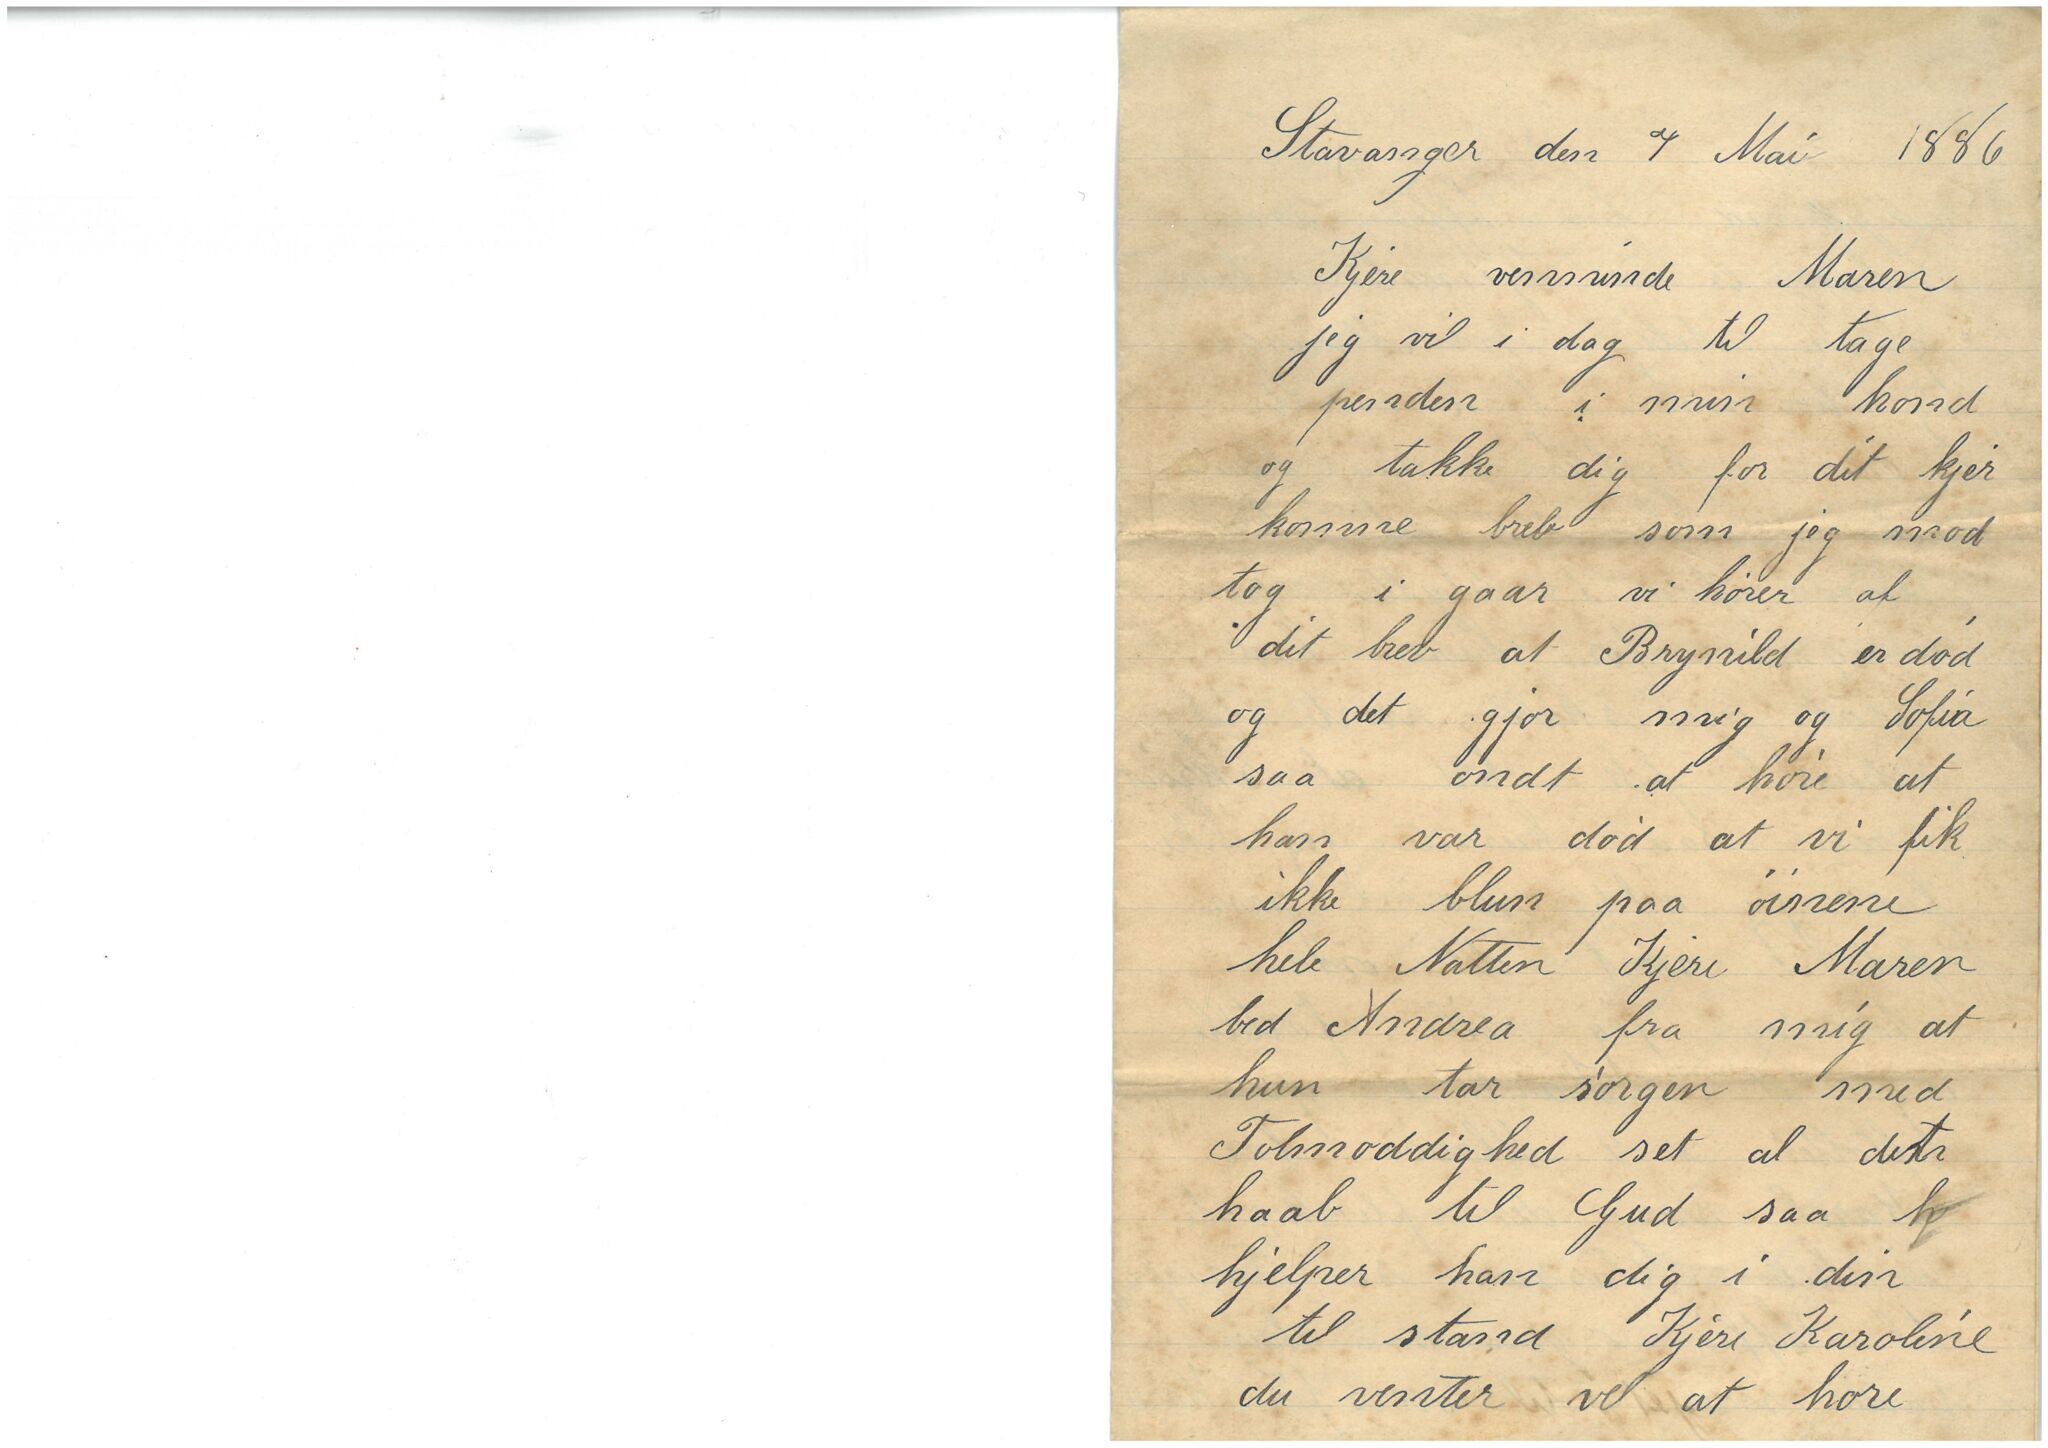 Stavanger den 7 Mai 1886
Kjere veninde Maren
jeg vil i dag til tage
penden i min hond
og takke dig for dit kjer
komne breb som jeg mod
tog i gaar vi hører af
dit brev at Brynild er død
og det gjor mig og Sofia
saa ondt at høre at
han var død at vi fik
ikke blun paa øinene
hele Natten Kjere Maren
bed Andrea fra mig at
hun tar sorgen med
Tolmoddighed set al
haab til Gud saa
hjelper han dig i din
til stand Kjere Karoline
du venter vel at hore